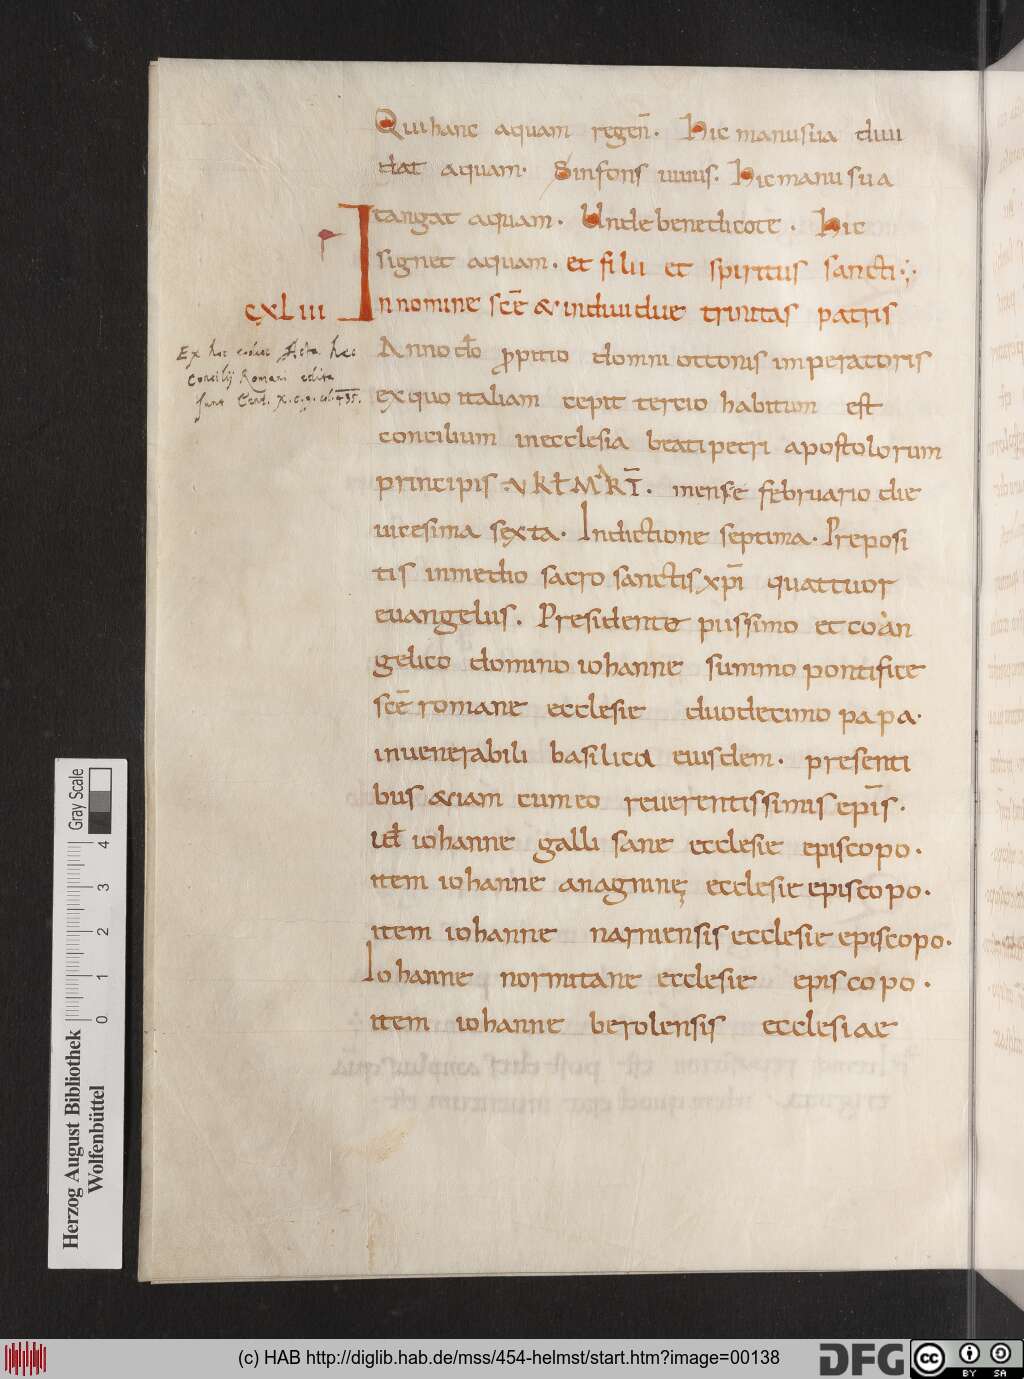 Qui hanc aquam regeñ. Hic manu sua diui
dat aquam. Sin fons uiuus. Hic manu sua
tangat aquam. Unde benedicote. Hic
signet aquam. et filii et spiritus sancti
CXLIII In nomine scē & indiuidue trinitas patris
Anno dō propitio domni ottonis imperatoris
Ex hoc codice Acta hec
Concilij Romani edita
sunt Cent. X. c. 9. col. 435.
ex quo italiam cepit tercio habitum est
concilium in ecclesia beati petri apostolorum
principis mense februario die
uicesima sexta. Indictione septima. Preposi
tis in medio sacro sanctis xpī quattuor
euangeliis. Presidente piissimo et coan
gelico domino iohanne summo pontifice
scē romane ecclesie duodecimo papa.
in uenerabili basilica eiusdem. presenti
bus &iam cum eo reuerentissimis epīs.
id iohanne galli sane ecclesie episcopo.
item iohanne anagninę ecclesie episcopo.
item iohanne narniensis ecclesie episcopo.
Iohanne normitane ecclesie episcopo.
item iohanne berolensis ecclesiae
Gray Scale
0 1 2 3 4
Herzog August Bibliothek
Wolfenbüttel
(c) HAB http://diglib.hab.de/mss/454-helmst/start.htm?image=00138
DFG
cc BY SA